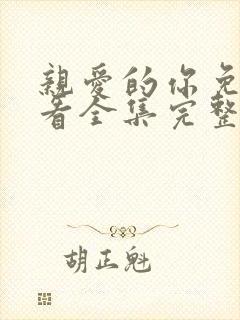 親愛的你免
看全集完整
胡正魁